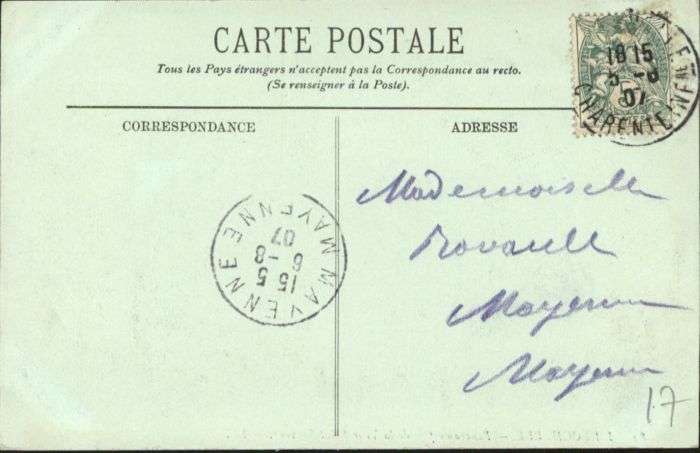 CARTE POSTALE
Tous les Pays étrangers n'acceptent pas la Correspondance au recto.
(Se renseigner à la Poste).
CORRESPONDANCE
ADRESSE
18 15
5 -8
07
CHARENTE INFRE
Mademoiselle
Mayenne
Mayenne
MAYENNE MAYENNE
15 5
6 -8
07
17